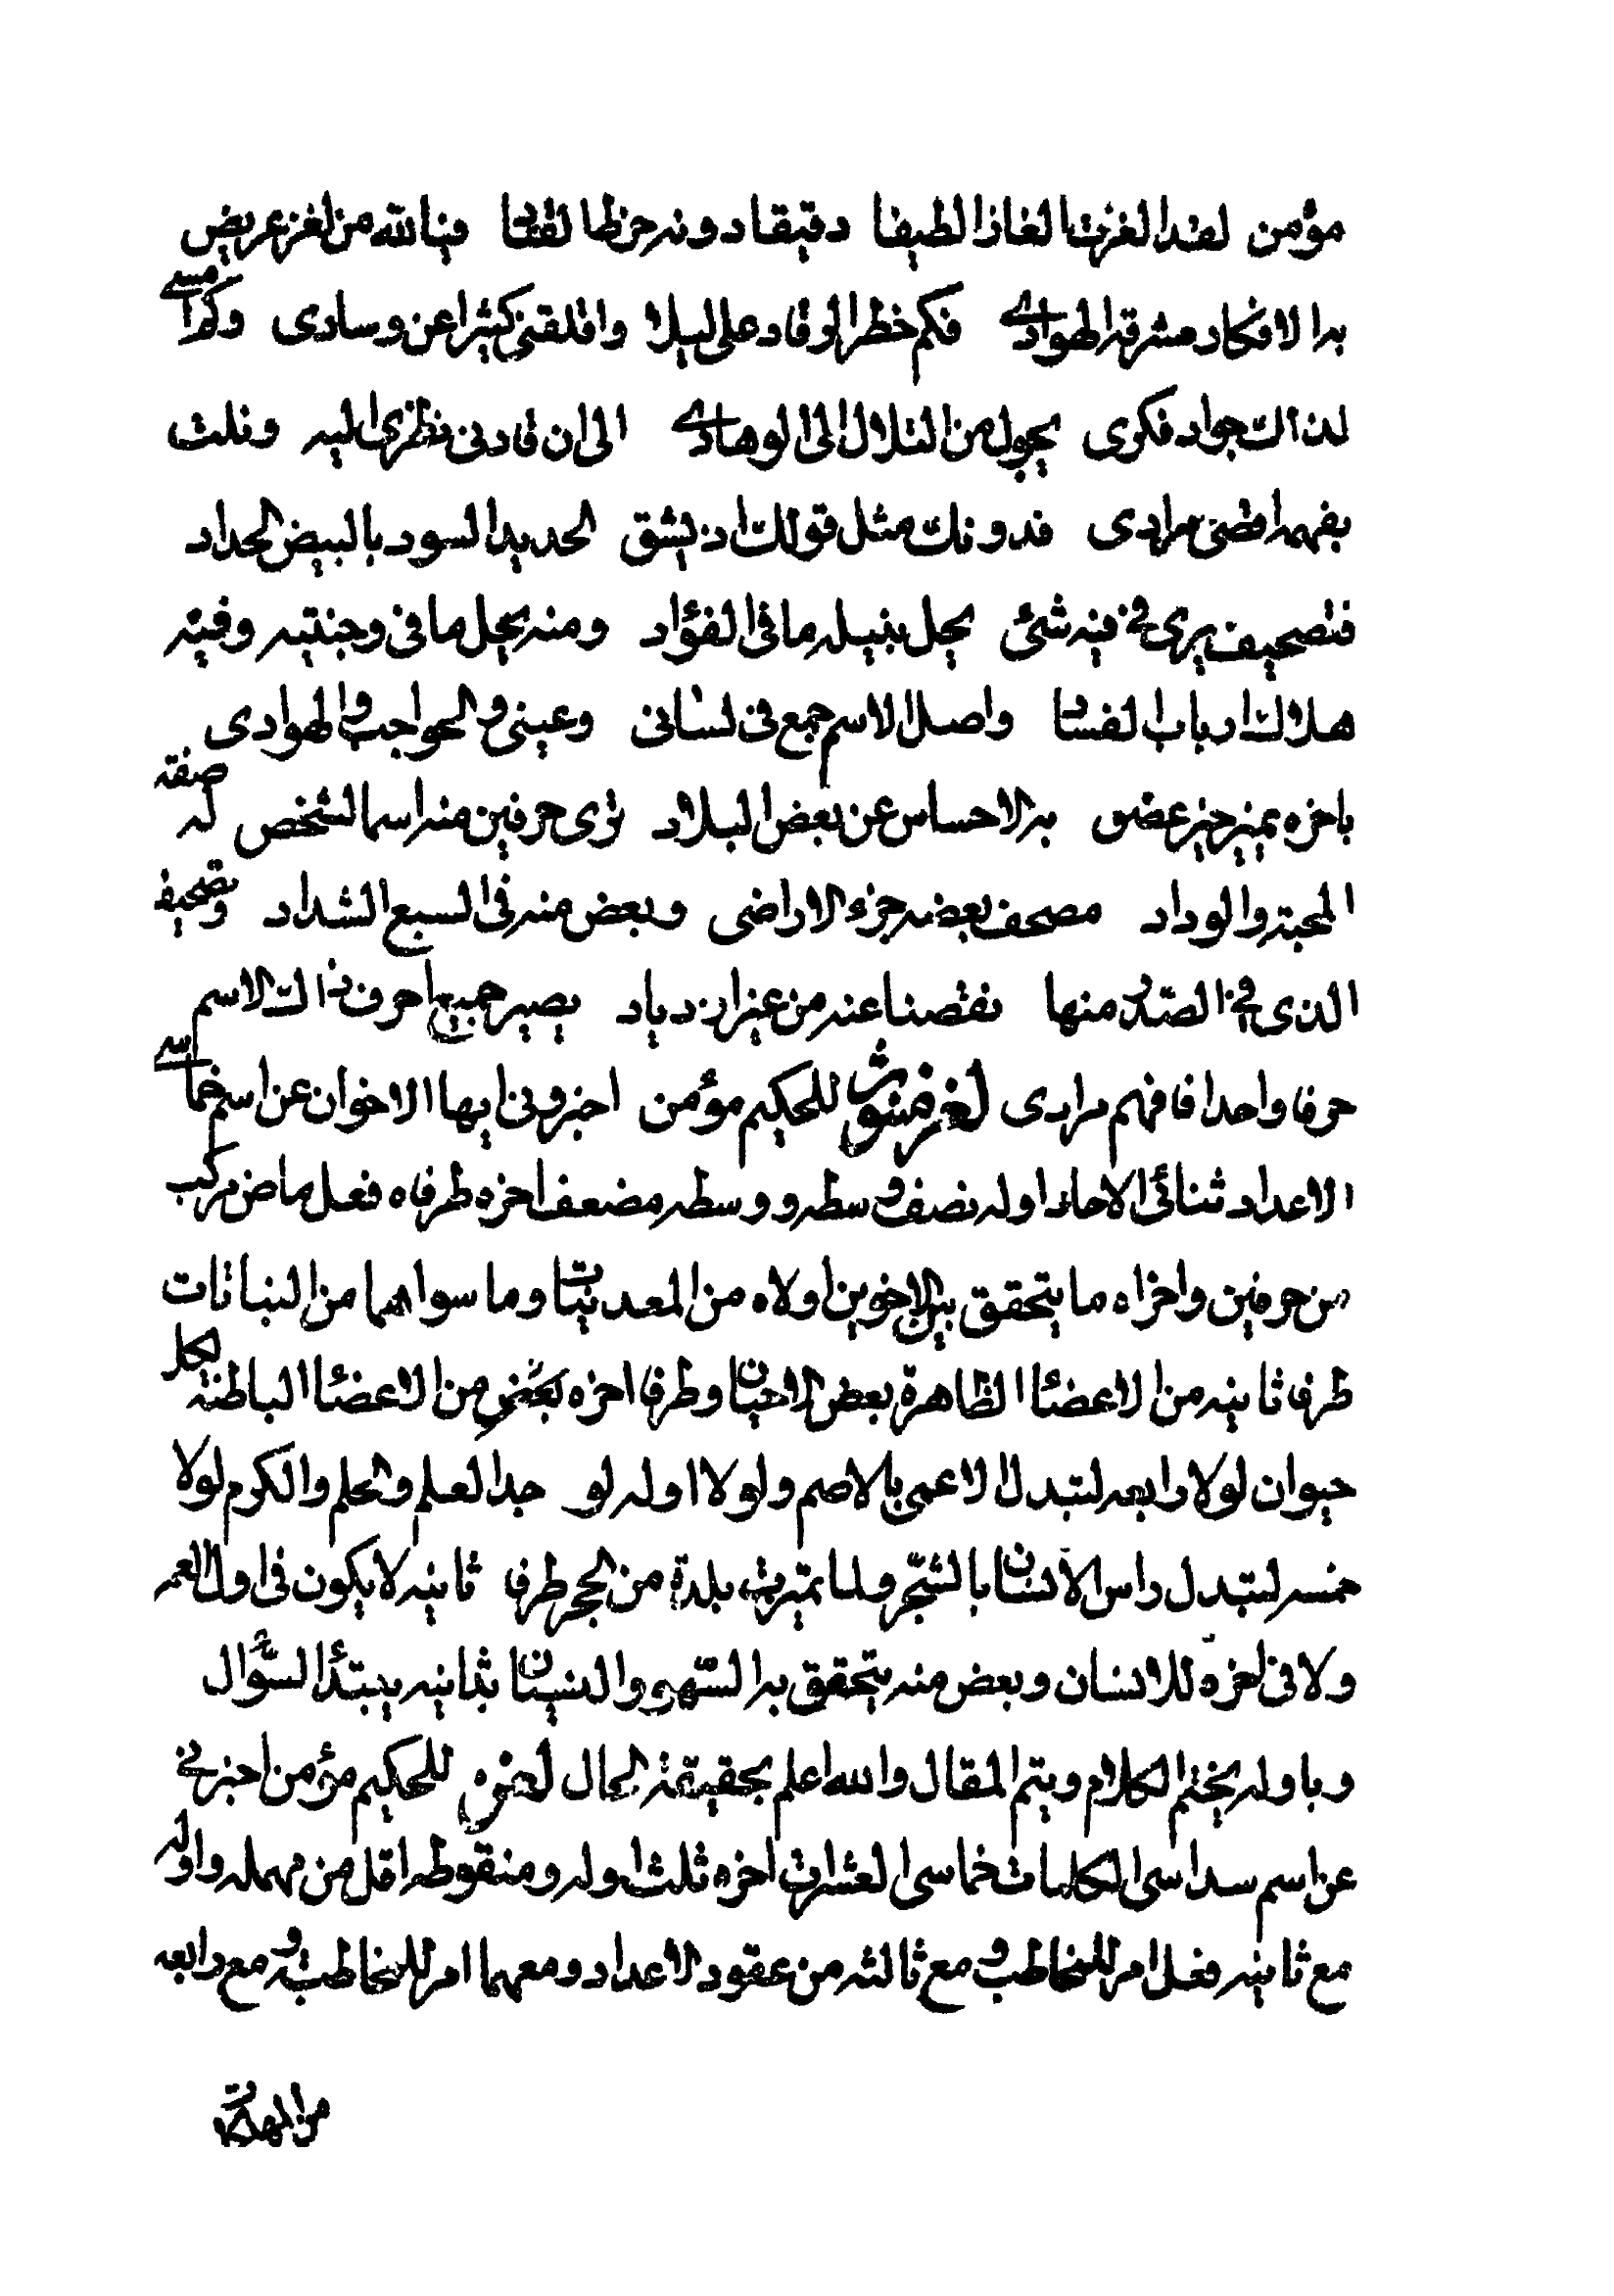 مؤمن لقد الغزت الغازا لطيفا دقيقا دونه حفظ القتاد فيا لله من لغز عريض
به الافكار مشرقة الهوادي فكم خطر الوقاد على ليلا واقلقني كثيرا عن وسادى وكم امسى
لذاك جواد فكرى يجول من التلال الى الوهادي الى ان قادنى نظرى اليه ونلت
بفهمه اقضى مرادى فدونك مثل قولك اذ يشق الحديد السود بالبيض الحداد
فتصحيف يرى فى فيه شئ يحل بنيله ما فى الفؤاد ومنه يحل ما فى وجنتيه وفيه
هلاك ارباب الفساد واصل الاسم جمع فى لسانى وعينى والحواجب والهوادى
باخره يميز حيز عضو به الاحساس عن بعض البلاد ترى حرفين منه اسما لشخص له صفة
المحبة والوداد مصحف بعضه جزء الاراضى وبعض منه فى السبع الشداد وتصحيف
الذى فى الصدر منها نقصنا عنه من غير ازدياد يصير جميع احرف ذاك الاسم
حرفا واحدا فافهم مرادى لغز للحكيم مؤمن اخبرونى ايها الاخوان عن اسم خماسي
الاعداد ثنائى الاحاد اوله نصف وسطه ووسطه مضعف اخره طرفاه فعل ماض مركب
من حرفين واخراه ما يتحقق بين الاخوين اولاه من المعدنيات وما سواهما من النباتات
طرفا ثانيه من الاعضاء الظاهرة بعض الاحيان وطرفا اخره بعض من الاعضاء الباطنة لكل
حيوان لولا رابعه لتبدل الاعمى بالاصم ولولا اوله لو جد العلم والحلم والكرم لولا
خمسه لتبدل راس الانسان بالشجر ولما تميزت بلدة من الحجر طرفا ثانيه لا يكون فى اول العمر
ولا فى اخره للانسان وبعض منه يتحقق به السهو والنسيان بثانيه يبتدأ السؤال
وباوله يختم الكلام ويتم المقال والله اعلم بحقيقة الحال لغز للحكيم مؤمن اخبرنى
عن اسم سداسى الكلمات خماسى العشرات اخره ثلث اوله ومنقوطه اقل من مهمله واوله
مع ثانيه فعل امر للمخاطب ومع ثالثه من عقود الاعداد ومعهما امر للمخاطبة ومع رابعه
من المهملات